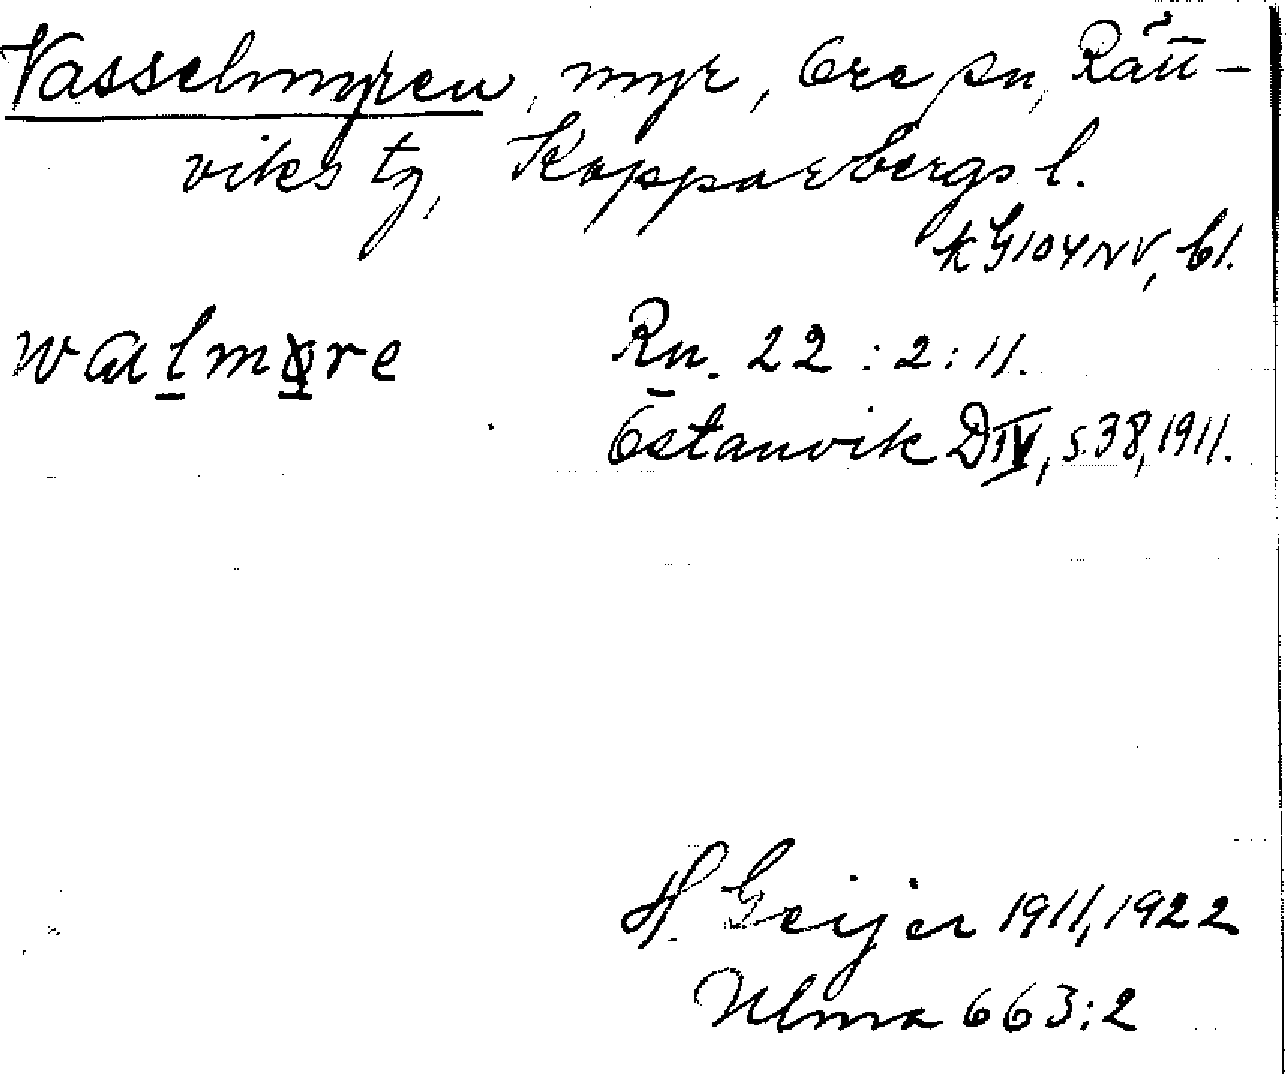 Vasselmyren, myr, Ore sn, Rätt-
viks tg, Kopparbergs l.
k G104NV, bl.
Rn. 22:2:11.
Östanvik D IV, s.38, 1911.
H. Geijer 1911, 1922
Ulma 663:2